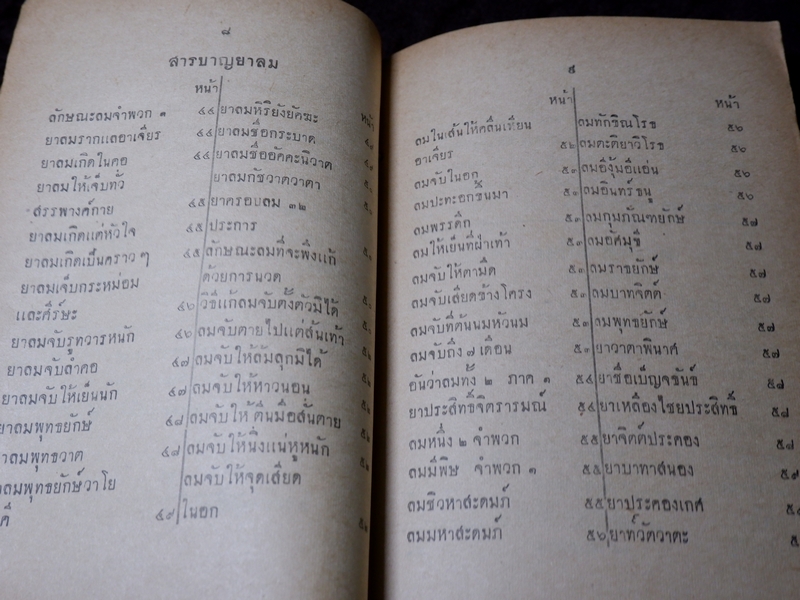 ๘
สารบาญยาลม
หน้า
ลักษณะลมจำพวก ๑ ๔๔
ยาลมรากแลอาเจียร ๔๔
ยาลมเกิดในคอ ๔๔
ยาลมให้เจ็บทั่ว
สรรพางค์กาย ๔๕
ยาลมเกิดแต่หัวใจ ๔๕
ยาลมเกิดเป็นคราว ๆ ๔๕
ยาลมเจ็บกระหม่อม
และศีร์ษะ ๔๖
ยาลมจับรูทวารหนัก ๔๖
ยาลมจับลำคอ ๔๗
ยาลมจับให้เย็นนัก ๔๗
ยาลมพุทธยักษ์ ๔๘
ยาลมพุทธวาต ๔๘
ยาลมพุทธยักษ์วาโย
๔๙
หน้า
ยาลมหิริยังยัคฆะ
ยาลมชื่อกระบาด
ยาลมชื่ออัคคะนิวาต
ยาลมกัชวาตวาตา
ยาครอบลม ๓๒
ประการ
ลักษณะลมที่จะพึงแก้
ด้วยการนวด
วิธีแก้ลมจับตั้งตัวมิได้
ลมจับตายไปแต่สันเท้า
ลมจับให้ล้มลุกมิได้
ลมจับให้หาวนอน
ลมจับให้ตีนมือสั่นตาย
ลมจับให้นิ่งแน่หูหนัก
ลมจับให้จุดเสียด
ในอก
๙
หน้า
ลมในเส้นให้คลื่นเหียน
อาเจียร ๕๒
ลมจับในอก ๕๓
ลมปะทะอกขึ้นมา ๕๓
ลมพรรดึก ๕๓
ลมให้เย็นที่ฝ่าเท้า ๕๓
ลมจับให้ตามืด ๕๓
ลมจับเสียดข้างโครง ๕๓
ลมจับที่ต้นนมหัวนม ๕๓
ลมจับถึง ๗ เดือน ๕๓
อันว่าลมทั้ง ๒ ภาค ๑ ๕๔
ยาประสิทธิ์จิตรารมณ์ ๕๔
ลมหนึ่ง ๒ จำพวก ๕๕
ลมมีพิษ จำพวก ๑ ๕๕
ลมชิวหาสะดมภ์ ๕๕
ลมมหาสะดมภ์ ๕๖
หน้า
ลมทักขิณโรธ ๕๖
ลมตะติยาวิโรธ ๕๖
ลมอีงุ้มอีแอ่น ๕๖
ลมอินทร์ธนู ๕๖
ลมกุมภัณฑยักษ์ ๕๗
ลมอัศมุขี ๕๗
ลมราชยักษ์ ๕๗
ลมบาทจิตต์ ๕๗
ลมพุทธยักษ์ ๕๗
ยาวาตาพินาศ ๕๗
ยาชื่อเบ็ญจขันธ์ ๕๘
ยาเหลืองไชยประสิทธิ์ ๕๘
ยาจิตต์ประคอง ๕๘
ยาบาทาสนอง ๕๙
ยาประคองเกศ
ยาทวัตวาตะ